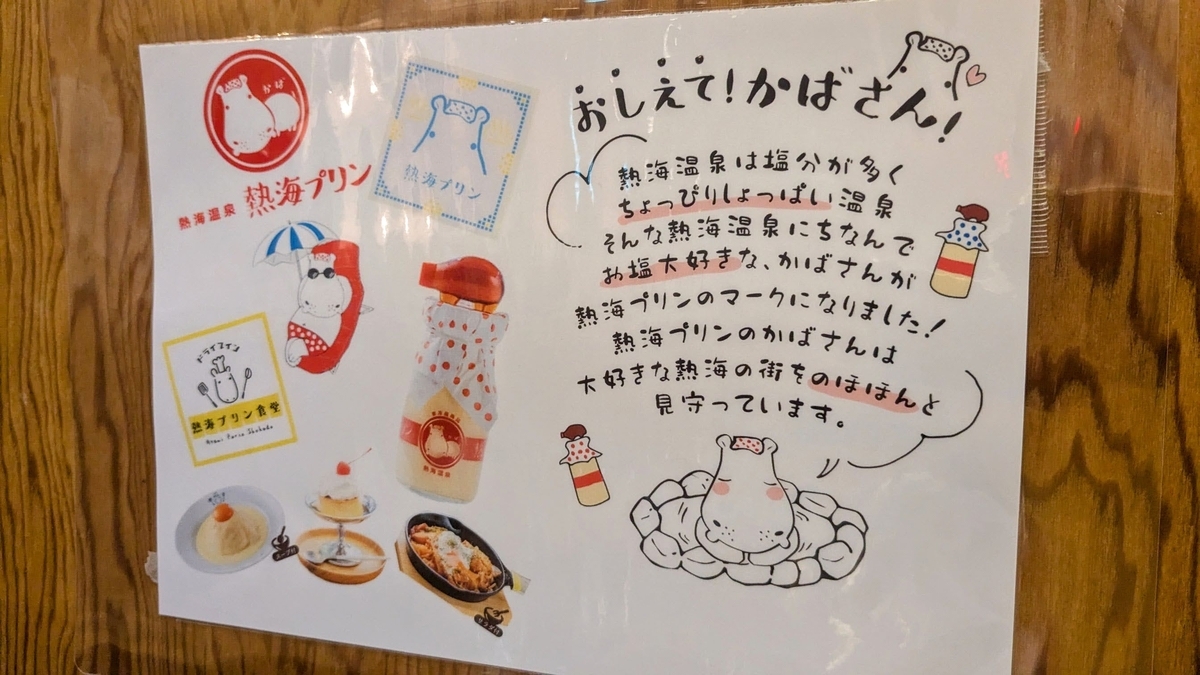 かば
熱海温泉 熱海プリン
熱海プリン
ドライブイン
熱海プリン食堂
Atami Purin Shokudo
熱海温泉
スープ付
サラダ付
おしえて!かばさん!
熱海温泉は塩分が多く
ちょっぴりしょっぱい温泉
そんな熱海温泉にちなんで
お塩大好きな、かばさんが
熱海プリンのマークになりました!
熱海プリンのかばさんは
大好きな熱海の街をのほほんと
見守っています。